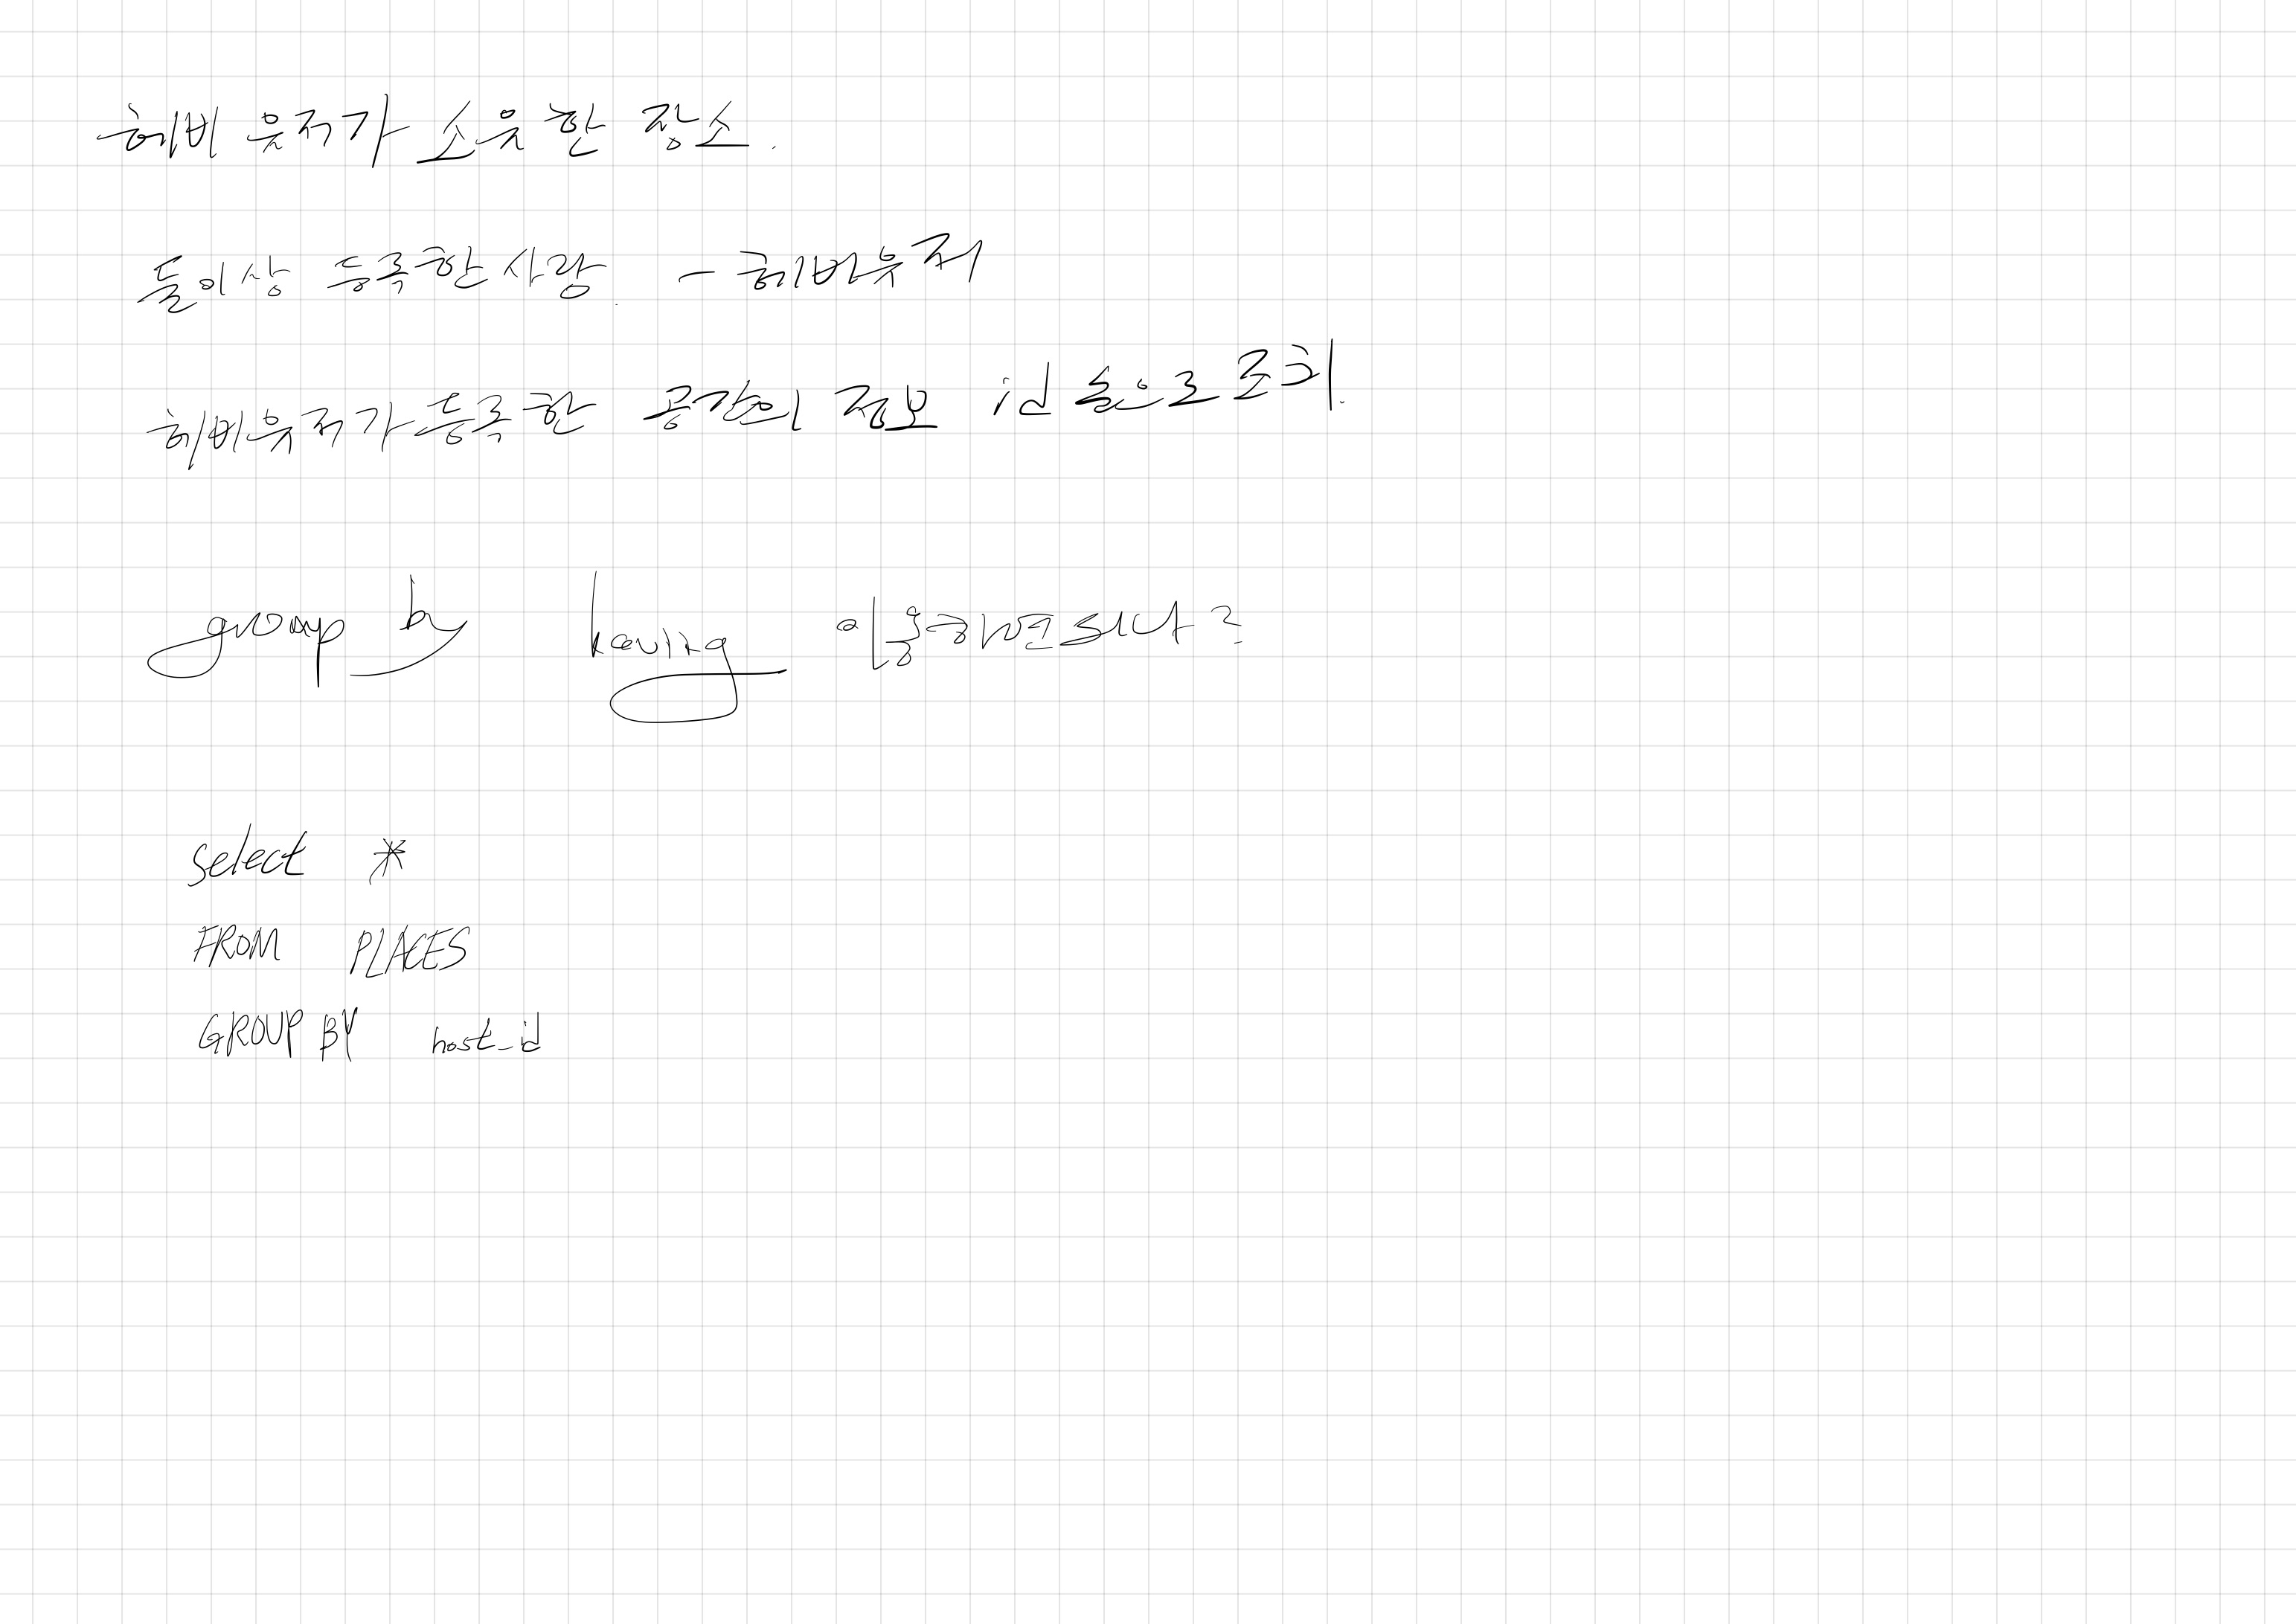 헤비 유저가 소유한 장소.
둘이상 등록한 사람. - 헤비유저
헤비유저가 등록한 공간의 정보 id 순으로 조회.
group by having 이용하면되나?
select *
FROM PLACES
GROUP BY host_id